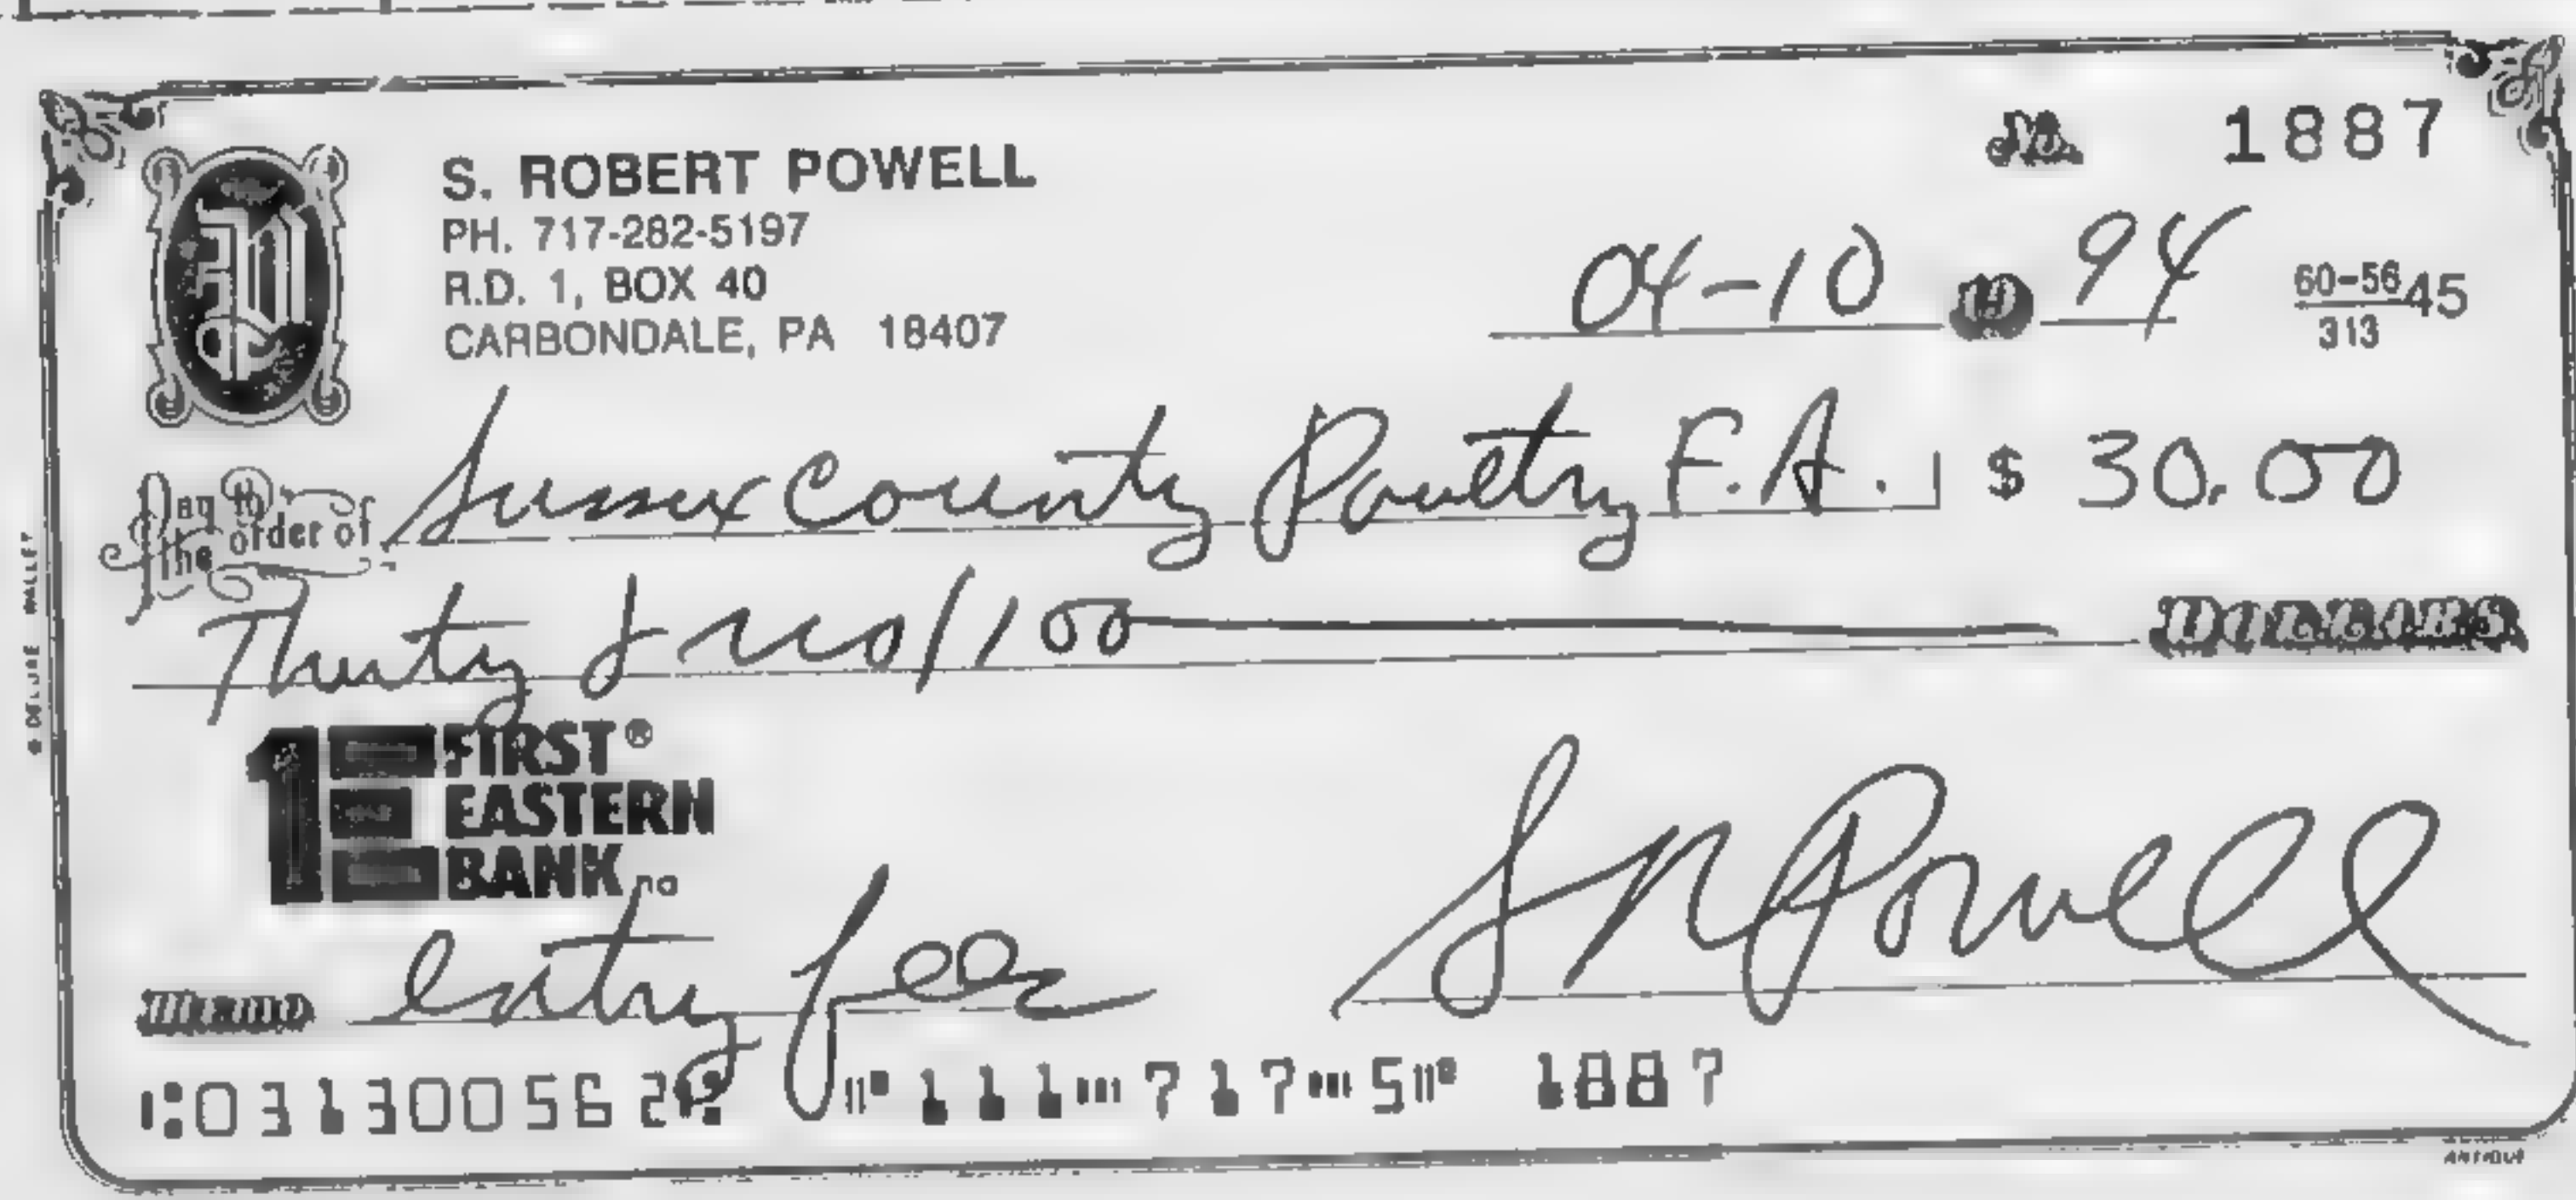 S. ROBERT POWELL
PH. 717-282-5197
R.D. 1, BOX 40
CARBONDALE, PA 18407
No. 1887
04-10 19 94
60-5645
313
Pay to the order of Sussex County Poultry F.A. $ 30.00
Thirty & no/100 DOLLARS
1E FIRST® EASTERN BANK na
Memo entry fee
S R Powell
⑆031300562⑆ ⑈111⑉717⑉5⑈ 1887
© DELUXE WALLET
ANTIQUE